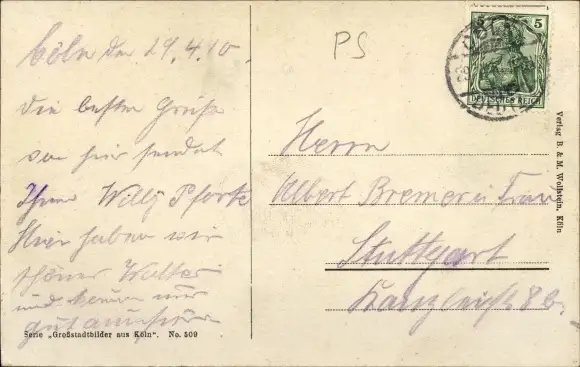 Cöln den 29.4.10.
Die besten Grüße
von hier sendet
Ihnen Willy Pforte
Hier haben wir
schönes Wetter
und
Serie „Großstadtbilder aus Köln“. No. 509
PS
5 5
DEUTSCHES REICH
Herrn
Albert Bremer u. Frau
Stuttgart
Kanzleistr. 8 b.
Verlag B. & M. Wolsheim, Köln